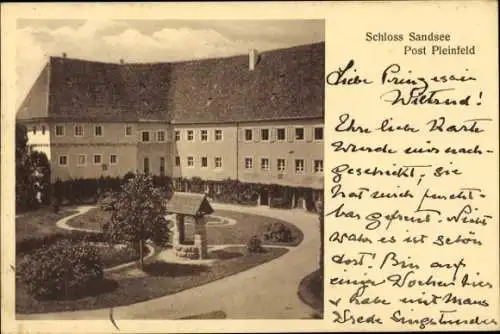 Schloss Sandsee
Post Pleinfeld
Liebe Prinzessin
Wiltrud!
Ihre liebe Karte
wurde mir nach-
geschickt, sie
hat mich furcht-
bar gefreut. Nicht
wahr es ist schön
dort! Bin auf
einige Wochen hier
& habe mit Maus
Wrede